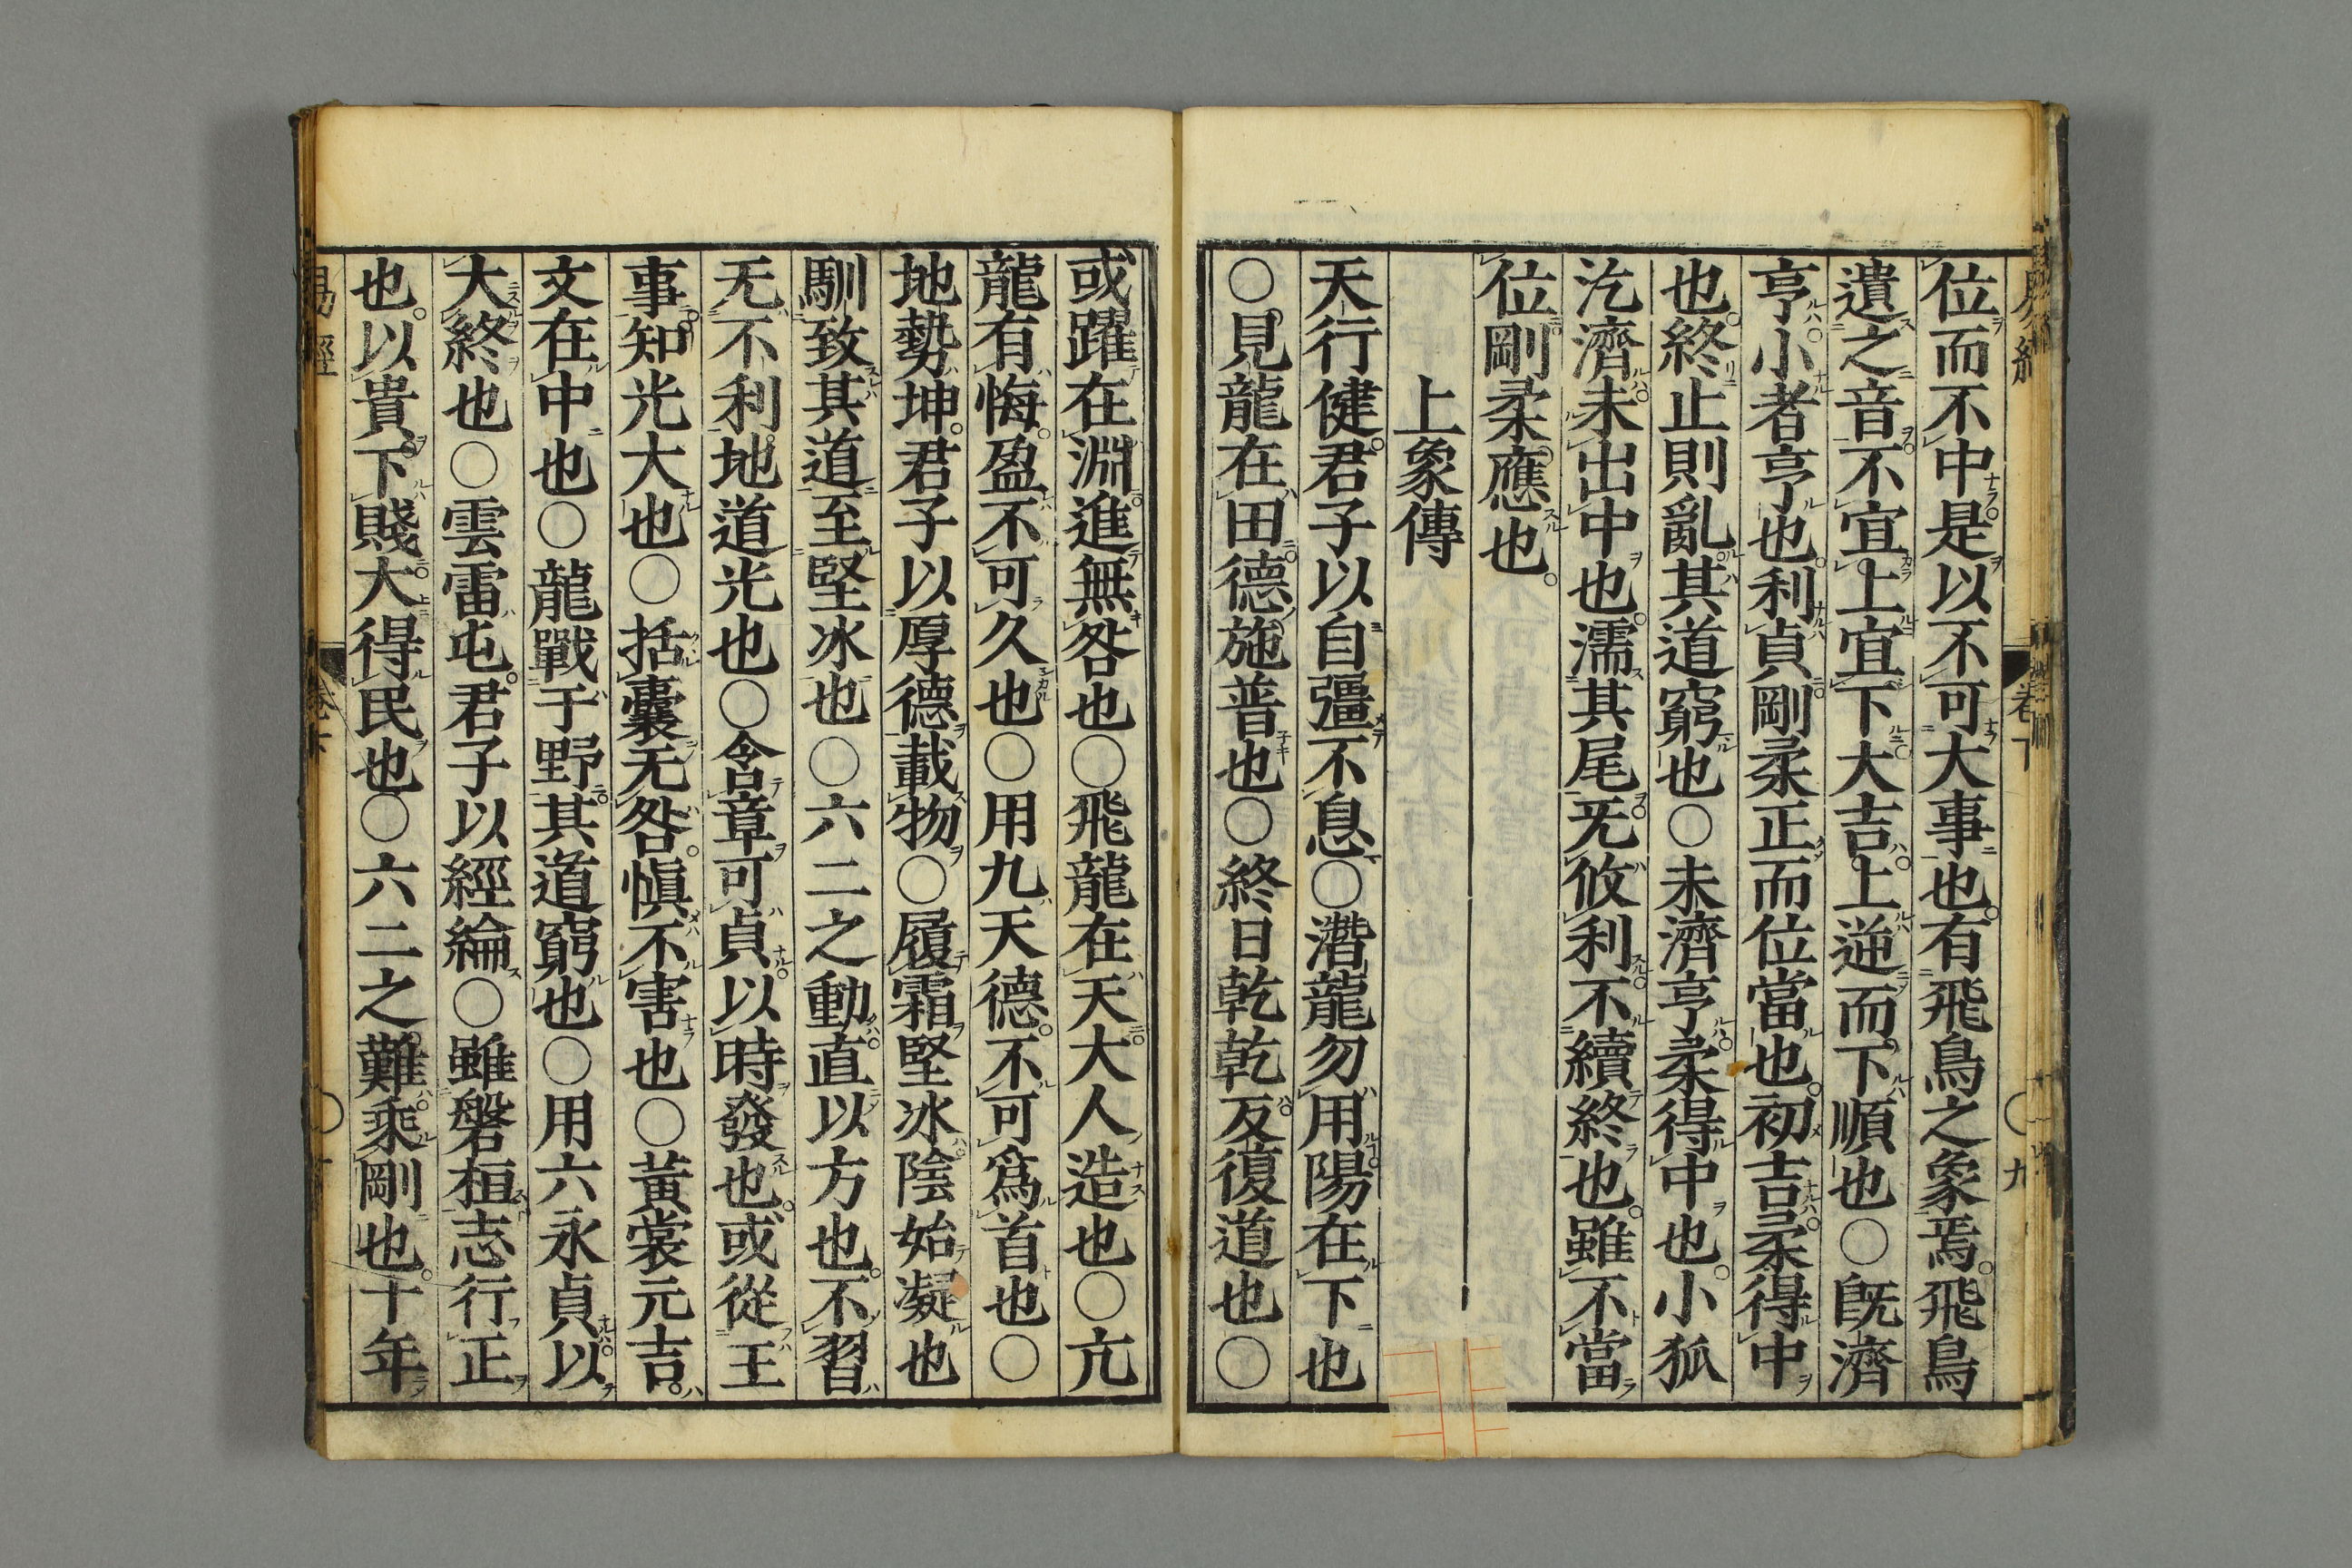 位而不中是以不可大事也有飛鳥之象焉飛鳥
遺之音不宜上宜下大吉上逆而下順也〇既濟
亨小者亨也利貞剛柔正而位當也初吉柔得中
也終止則亂其道窮也〇未濟亨柔得中也小狐
汔濟未出中也濡其尾无攸利不續終也雖不當
位剛柔應也
上象傳
天行健君子以自彊不息〇潛龍勿用陽在下也
〇見龍在田德施普也〇終日乾乾反復道也〇
或躍在淵進無咎也〇飛龍在天大人造也〇亢
龍有悔盈不可久也〇用九天德不可爲首也〇
地勢坤君子以厚德載物〇履霜堅冰陰始凝也
馴致其道至堅冰也〇六二之動直以方也不習
无不利地道光也〇含章可貞以時發也或從王
事知光大也〇括囊无咎愼不害也〇黃裳元吉
文在中也〇龍戰于野其道窮也〇用六永貞以
大終也〇雲雷屯君子以經綸〇雖磐桓志行正
也以貴下賤大得民也〇六二之難乘剛也十年
易經